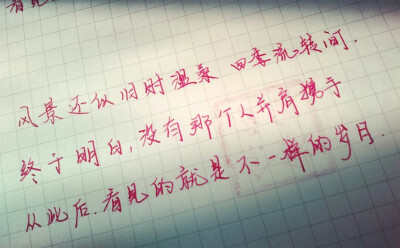 看见
风景还似旧时温柔 四季流转间.
终于明白,没有那个人并肩携手
从此后.看见的就是不一样的岁月.